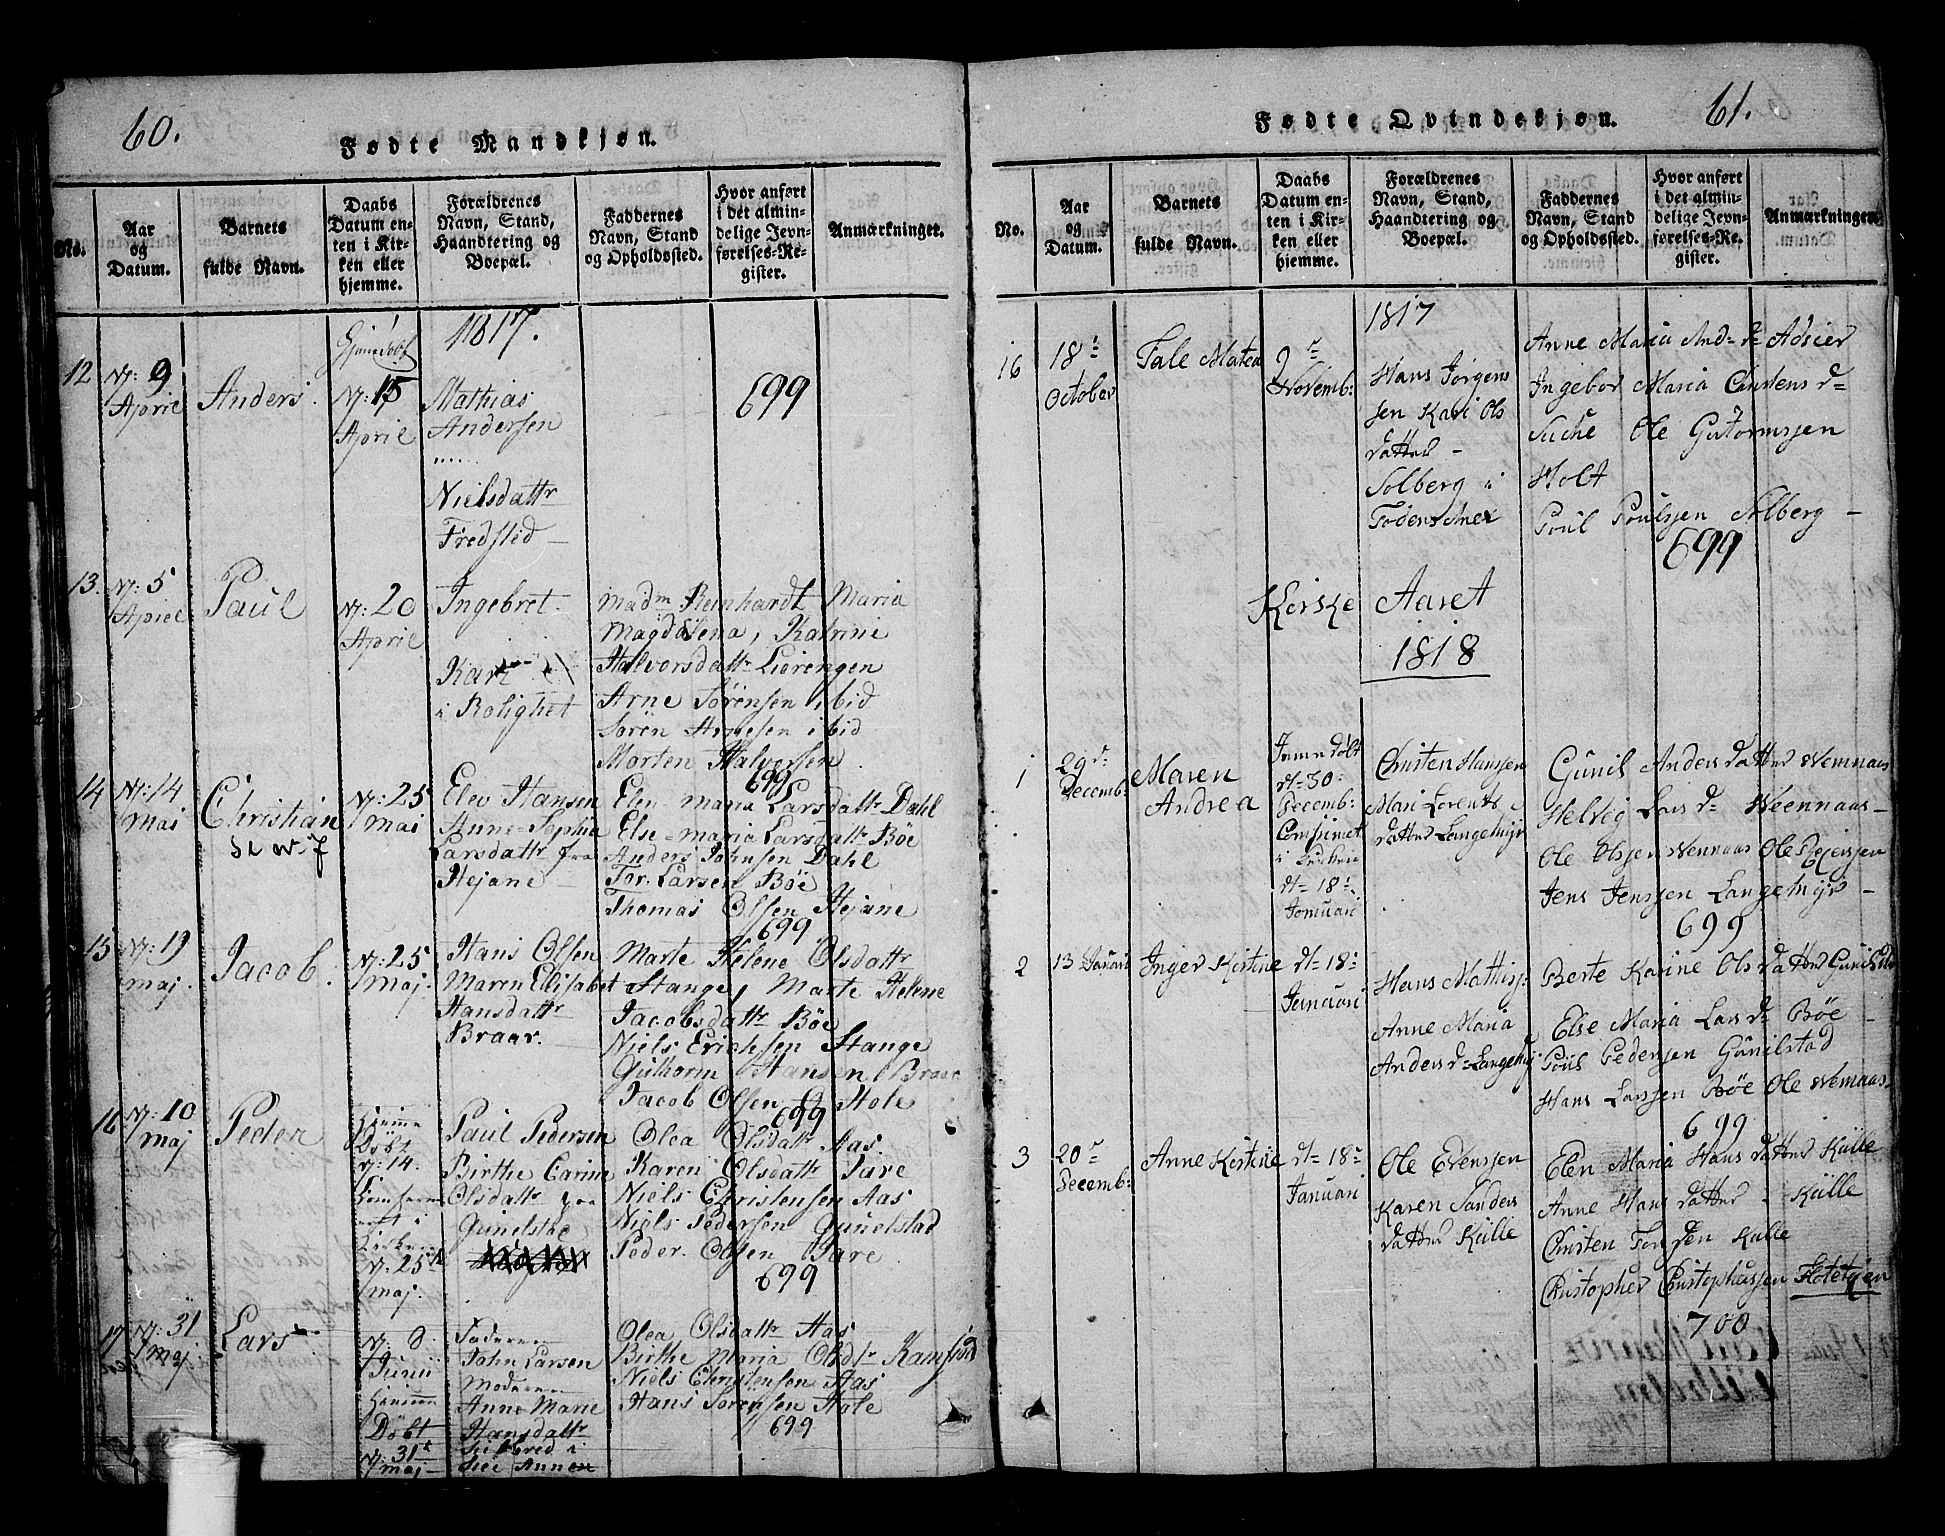 60.
Fødte Mandkjøn.
No.
Aar og Datum.
Barnets fulde Navn.
Daabs Datum enten i Kirken eller hjemme.
Forældrenes Navn, Stand, Haandtering og Boepæl.
Faddernes Navn, Stand og Opholdssted.
Hvor anført i det almindelige Jevnførelses-Register.
Anmærkninger.
1817.
12
9 April
Anders
15 April
Mathias
Andersen
......
Nielsdattr
Fredsted
699
13.
5 April
Paul
20 April
Ingebret
Kari
i Rolighet
Madm Reinhardt Maria
Magdalena, Katrine
Halvorsdattr Lierengen
Arne Sörensen ibid
Sören Arnesen ibid
Morten Halvorsen
699
14
14 maj
Christian
25 maj
Elev Hansen
Anne Sophia
Larsdattr fra
Hejane
Elen maria Larsdattr Dahl
Else maria Larsdattr Böe
Anders Johnsen Dahl
Tor Larsen Böe
Thomas Olsen Hejane
699
15
19 maj.
Jacob.
25 maj.
Hans Olsen
Maren Elisabet
Hansdattr
Braar.
Marte Helene Olsdattr
Stange, Marte Helene
Jacobsdattr Böe
Niels Erichsen Stange
Guthorm Hansen Braar
Jacob Olsen Hole
699
16
10 maj
Peder
Hiemme
Döbt
14.
Kirken
25 maj.
Paul Pedersen
Birthe Carine
Olsdattr fra
Gunelstad
Olea Olsdattr Aas.
Karen Olsdattr Jare
Niels Christensen Aas
Niels Pedersen Gunelstad
Peder Olsen Jare
699
17
31 maj
Lars
8 Junii
Hiemme
Döbt
31 maj
Faderen
John Larsen
Moderen
Anne Marie
Hansdattr
Olea Olsdattr Aas
Birthe Maria Olsdtr
Niels Christensen Aas
Hans Sörensen Hole
699
61.
Fødte Qvindekjøn.
No.
Aar og Datum.
Barnets fulde Navn.
Daabs Datum enten i Kirken eller hjemme.
Forældrenes Navn, Stand, Haandtering og Boepæl.
Faddernes Navn, Stand og Opholdssted.
Hvor anført i det almindelige Jevnførelses-Register.
Anmærkninger.
1817
16
18 October
Tale Matea
9 Novemb:
Hans Jörgens
sen Kari Ols
datter
Solberg i
Anne Maria And d
Ingebor Maria d
Ole Gutormsen
Holt
Poul Poulsen Solberg
699
Aaret
1818
1
29 Decemb:
Maren
Andrea
30
Decemb:
18
Januari
Christen Hanssen
datter Langemyr
Gunil Anders datter Nemnaas
Helvig Lars d
Ole Olssen Nemnaas Ole
Jens Jenssen Langemyr
699
2
13 Januari
Inger Kirstine
18
Januari
Hans
Anne Maria
Anders d Langemyr
Berte Karine Ols datter
Else Maria Lars d Böe
Poul Pedersen Gunilstad
Hans Larssen Böe Ole Nemnaas
699
3
20 Decemb:
Anne Kirstine
18
Januari
Ole Evenssen
Karen
datter Külle
Elen Maria Hans datter Külle
Anne Hans datter Külle
Külle
Christopher Christophersen
700